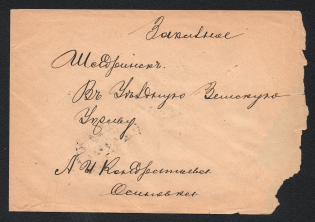 Заказное
Шадринскъ.
Въ Уѣздную Земскую
Управу.
А И Кондратьевой